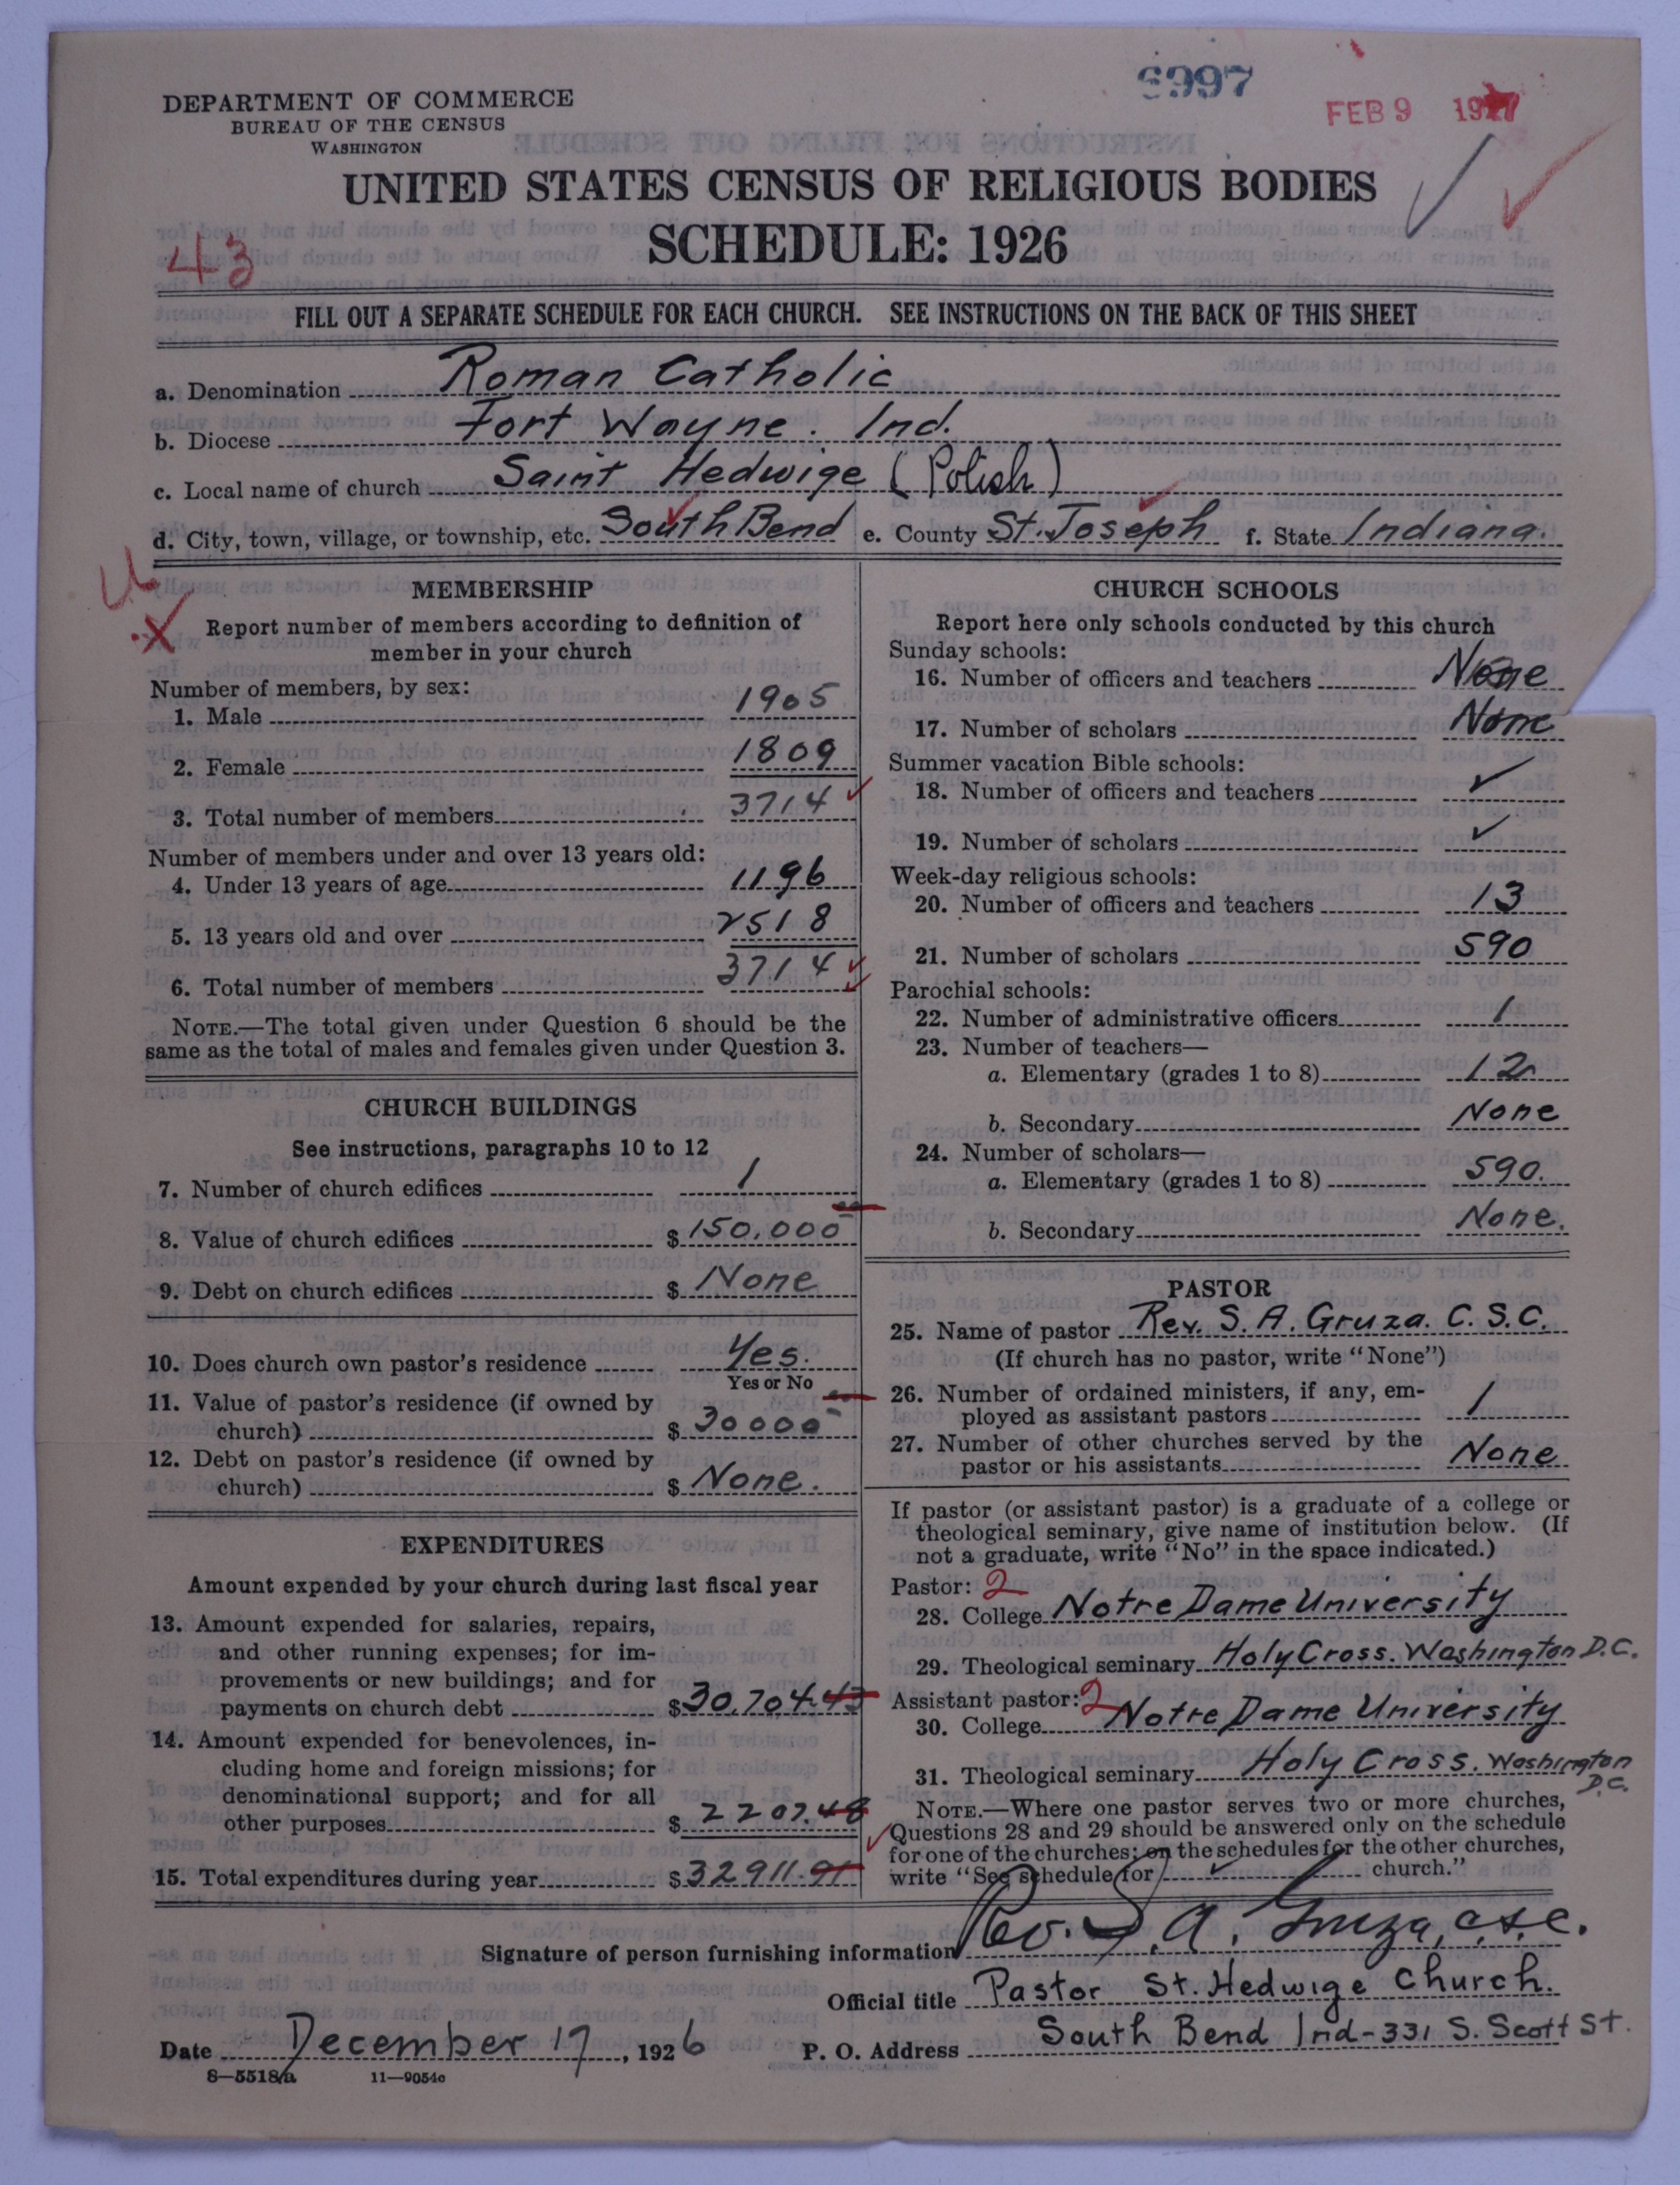 6997
FEB 9 1927
DEPARTMENT OF COMMERCE
BUREAU OF THE CENSUS
WASHINGTON
UNITED STATES CENSUS OF RELIGIOUS BODIES
SCHEDULE: 1926
43
FILL OUT A SEPARATE SCHEDULE FOR EACH CHURCH. SEE INSTRUCTIONS ON THE BACK OF THIS SHEET
a. Denomination Roman Catholic
b. Diocese Fort Wayne. Ind.
c. Local name of church Saint Hedwige (Polish)
d. City, town, village, or township, etc. South Bend e. County St. Joseph f. State Indiana.
MEMBERSHIP
Report number of members according to definition of
member in your church
Number of members, by sex:
1. Male 1905
2. Female 1809
3. Total number of members 3714
Number of members under and over 13 years old:
4. Under 13 years of age 1196
5. 13 years old and over 2518
6. Total number of members 3714
NOTE.—The total given under Question 6 should be the
same as the total of males and females given under Question 3.
CHURCH BUILDINGS
See instructions, paragraphs 10 to 12
7. Number of church edifices 1
8. Value of church edifices $ 150,000 00
9. Debt on church edifices $ None
10. Does church own pastor's residence Yes.
Yes or No
11. Value of pastor's residence (if owned by
church) $ 30000
12. Debt on pastor's residence (if owned by
church) $ None.
EXPENDITURES
Amount expended by your church during last fiscal year
13. Amount expended for salaries, repairs,
and other running expenses; for im-
provements or new buildings; and for
payments on church debt $ 30,704.43
14. Amount expended for benevolences, in-
cluding home and foreign missions; for
denominational support; and for all
other purposes $ 2207.48
15. Total expenditures during year $ 32911.91
CHURCH SCHOOLS
Report here only schools conducted by this church
Sunday schools:
16. Number of officers and teachers None
17. Number of scholars None
Summer vacation Bible schools:
18. Number of officers and teachers ✓
19. Number of scholars ✓
Week-day religious schools:
20. Number of officers and teachers 13
21. Number of scholars 590
Parochial schools:
22. Number of administrative officers 1
23. Number of teachers—
a. Elementary (grades 1 to 8) 12
b. Secondary None
24. Number of scholars—
a. Elementary (grades 1 to 8) 590.
b. Secondary None.
PASTOR
25. Name of pastor Rev. S. A. Gruza. C. S. C.
(If church has no pastor, write "None")
26. Number of ordained ministers, if any, em-
ployed as assistant pastors 1
27. Number of other churches served by the
pastor or his assistants None
If pastor (or assistant pastor) is a graduate of a college or
theological seminary, give name of institution below. (If
not a graduate, write "No" in the space indicated.)
Pastor: 2
28. College Notre Dame University
29. Theological seminary Holy Cross. Washington D.C.
Assistant pastor: 2
30. College Notre Dame University
31. Theological seminary Holy Cross. Washington
D.C.
NOTE.—Where one pastor serves two or more churches,
Questions 28 and 29 should be answered only on the schedule
for one of the churches; on the schedules for the other churches,
write "See schedule for ✓ church."
Signature of person furnishing information Rev. S. A. Gruza, c.s.c.
Official title Pastor St. Hedwige Church.
Date December 17, 1926 P. O. Address South Bend Ind-331 S. Scott St.
8—5518a 11—9054c